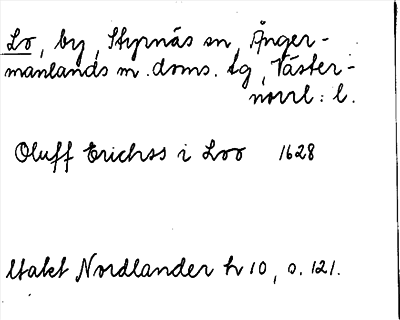 Lo, by, Styrnäs sn, Ånger-
manlands m. doms. tg, Väster-
norrl: l.
Oluff Erichss i Loo 1628
Utakt Nordlander h 10, s. 121.